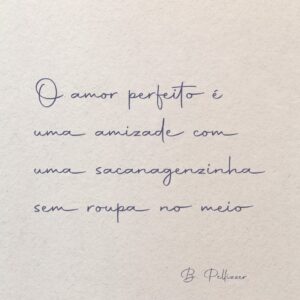 O amor perfeito é
uma amizade com
uma sacanagenzinha
sem roupa no meio
B.